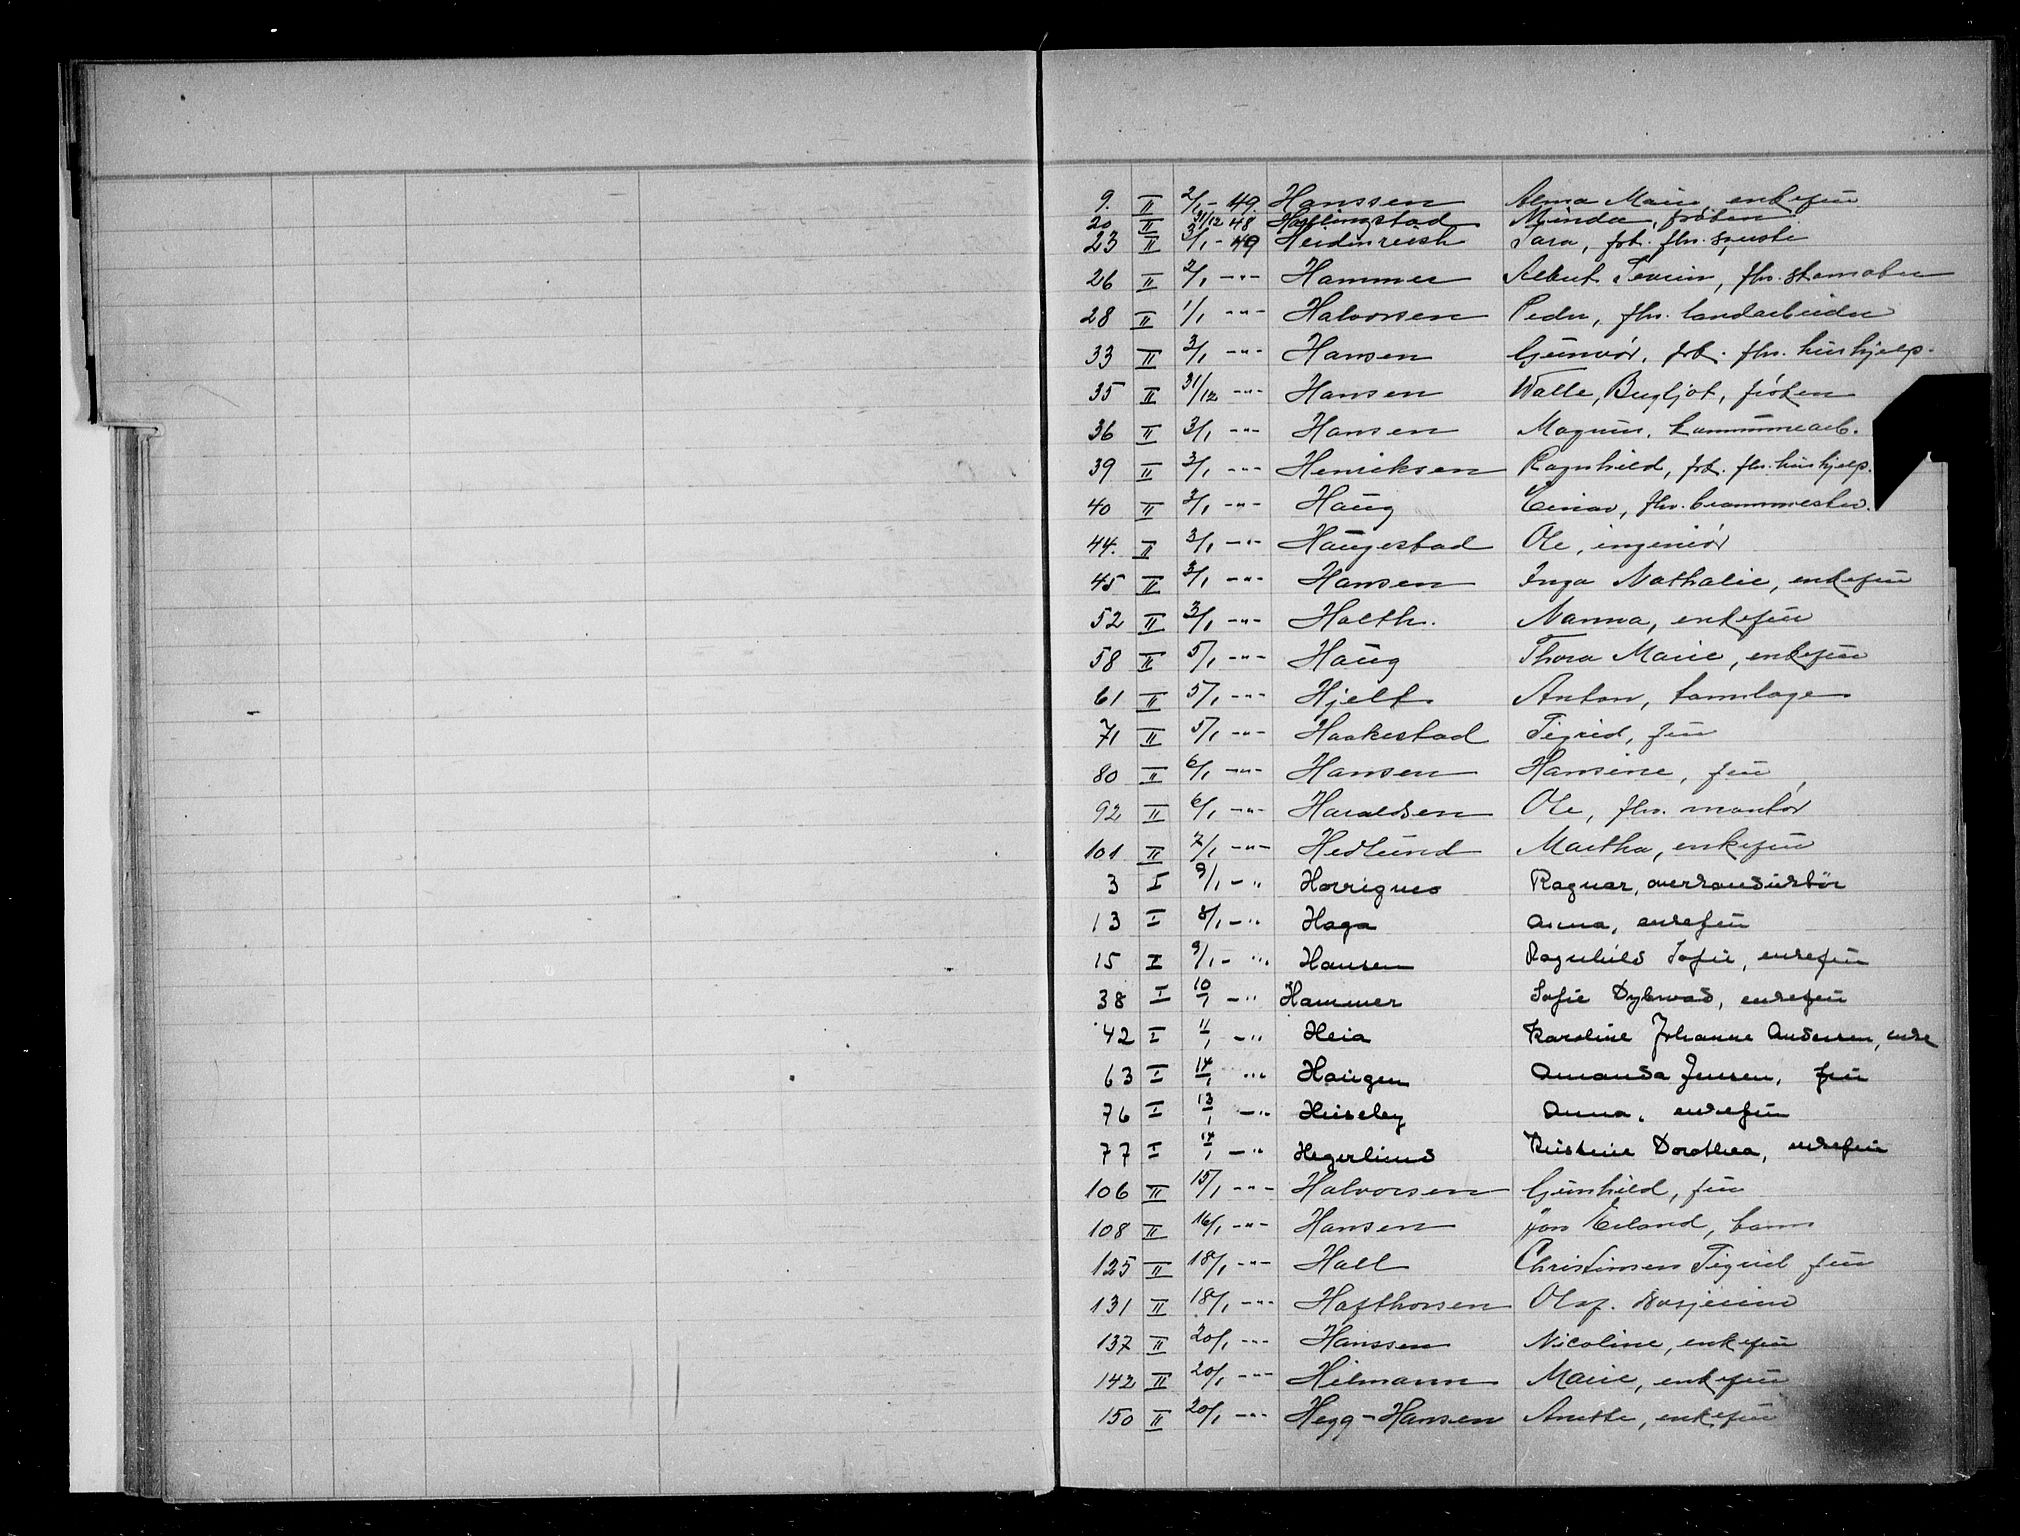 9. II 2/1 - 49. Hanssen Alma Marie enkefru
20 II 31/12 48 Hallingstad Minda, frøken
23 II 3/1 - 49 Heidinreich Sara, frk. fhv.
26 II 2/1 -"- Hammer Albert Severin, fhv.
28 II 1/1 -"- Halvorsen Peder, fhv. landarbeider
33 II 3/1 -"- Hansen Gunvor, frk. fhv. hushjelp.
35 II 31/12 -"- Hansen Walle, Bergljot, frøken
36 II 3/1 -"- Hansen Magnus, kommunearb.
39 II 3/1 -"- Henriksen Ragnhild, frk. fhv. hushjelp.
40 II 3/1 -"- Haug Einar, fhv. brannmester.
44. II 3/1 -"- Haugestad Ole, ingeniør
45 II 3/1 -"- Hansen Inga Nathalie, enkefru
52 II 3/1 -"- Holth. Nanna, enkefru
58 II 5/1 -"- Haug Thora Marie, enkefru
61 II 5/1 -"- Hjelt Anton, tannlæge
71 II 5/1 -"- Haakestad Sigrid, fru
80 II 6/1 -"- Hansen Hansine, fru
92 II 6/1 -"- Haraldsen Ole, fhv. montør
101 II 7/1 -"- Hedlund Martha, enkefru
3 I 9/1 - " Horrigmo Ragnar,
13 I 8/1 - " Haga Anna, enkefru
15 I 9/1 - " Hansen Ragnhild Sofie, enkefru
38 I 10/1 - " Hammer Sofie Dybwad, enkefru
42 I 11/1 - " Heia Karoline Johanne Andersen, enke
63 I 14/1 " Haugen Amanda Jensen, fru
76 I 13/1 - " Huseby Anna, enkefru
77 I 14/1 - " Hegerlund Kristine Dorothea, enkefru
106 II 15/1 -"- Halvorsen Gunhild, fru
108 II 16/1 -"- Hansen Jon Erland, barn
125 II 18/1 -"- Hall Christinsen Sigrid fru
131 II 18/1 -"- Hafthorsen Olaf.
137 II 20/1 -"- Hanssen Nicoline, enkefru
142 II 20/1 -"- Heimann Marie, enkefru
150 II 20/1 -"- Hegg-Hansen Anette, enkefru